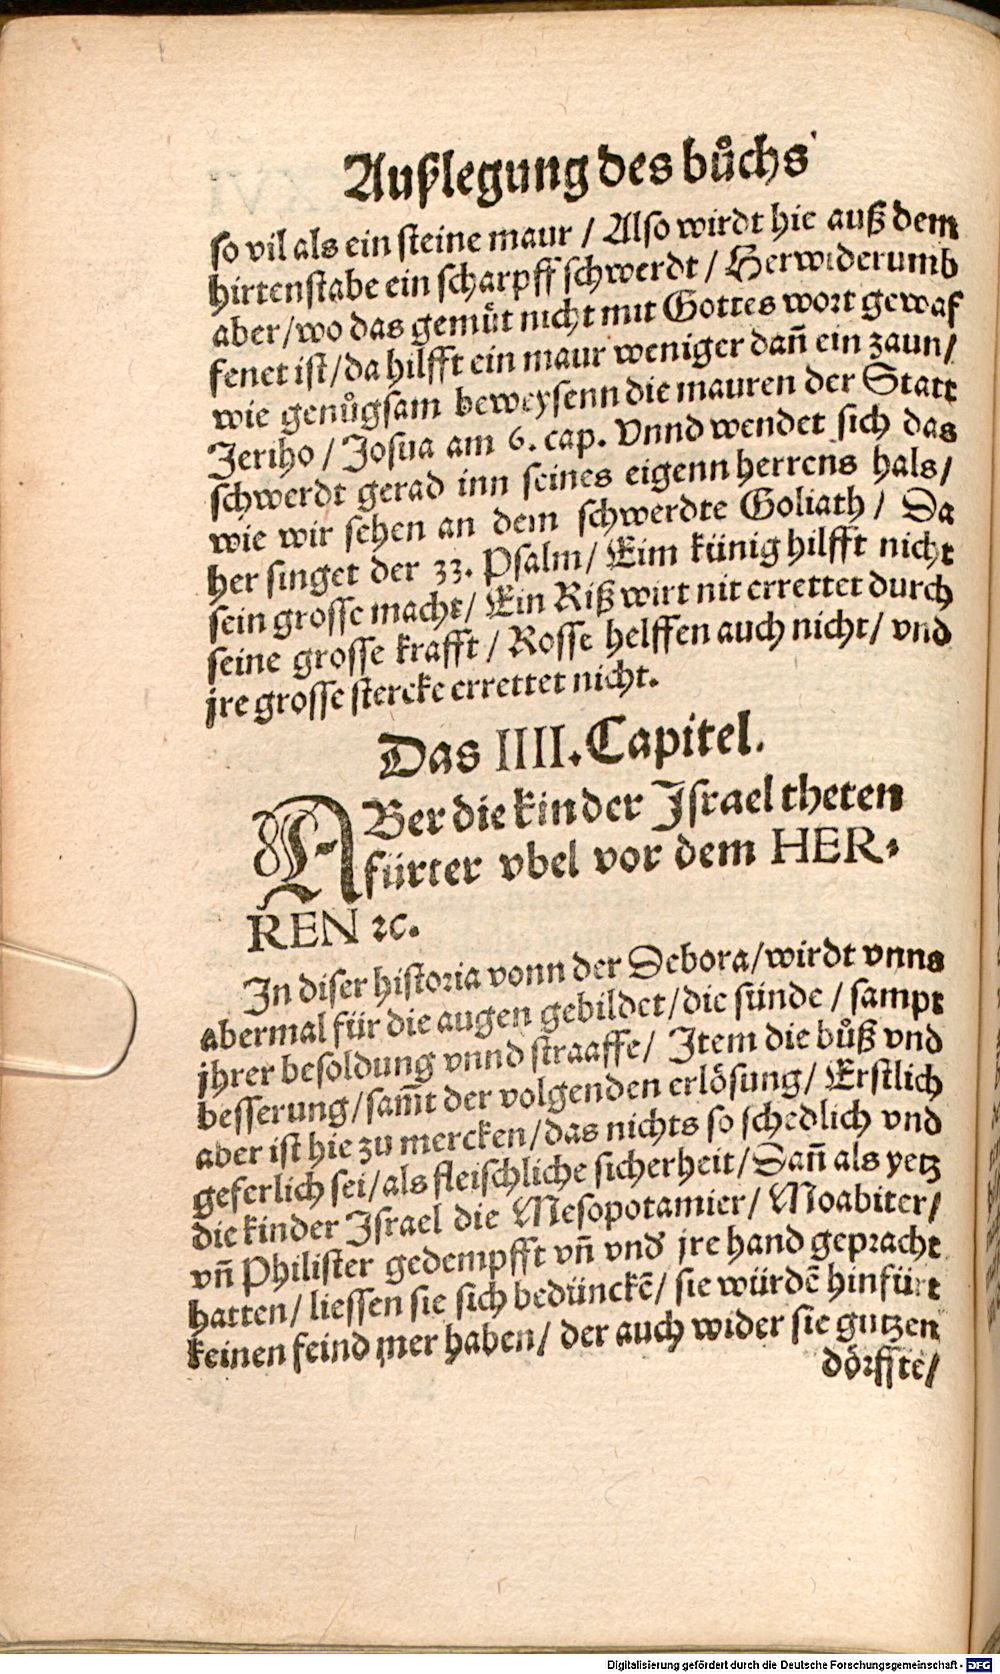 Außlegung des bůchs
so vil als ein steine maur / Also wirdt hie auß dem
hirtenstabe ein scharpff schwerdt / Herwiderumb
aber/wo das gemüt nicht mit Gottes wort gewaf
fenet ist/da hilfft ein maur weniger dañ ein zaun/
wie genůgsam beweysenn die mauren der Statt
Jeriho / Josua am 6. cap. Vnnd wendet sich das
schwerdt gerad inn seines eigenn herrens hals/
wie wir sehen an dem schwerdte Goliath / Da
her singet der 33. Psalm/ Eim künig hilfft nicht
sein grosse macht/ Ein Riß wirt nit errettet durch
seine grosse krafft / Rosse helffen auch nicht/ vnd
jre grosse stercke errettet nicht.
Das IIII. Capitel.
ABer die kinder Israel theten
fürter vbel vor dem HER-
REN ꝛc.
In diser historia vonn der Debora/wirdt vnns
abermal für die augen gebildet/die sünde / sampt
jhrer besoldung vnnd straaffe/ Item die bůß vnd
besserung/sam̃t der volgenden erlösung/ Erstlich
aber ist hie zu mercken/das nichts so schedlich vnd
geferlich sei/als fleischliche sicherheit/Dañ als yetz
die kinder Israel die Mesopotamier/ Moabiter/
vñ Philister gedempfft vñ vnd jre hand gepracht
hatten/ liessen sie sich bedünckẽ/ sie würdẽ hinfürt
keinen feind mer haben/ der auch wider sie gutzen
dörffte/
Digitalisierung gefördert durch die Deutsche Forschungsgemeinschaft - DFG